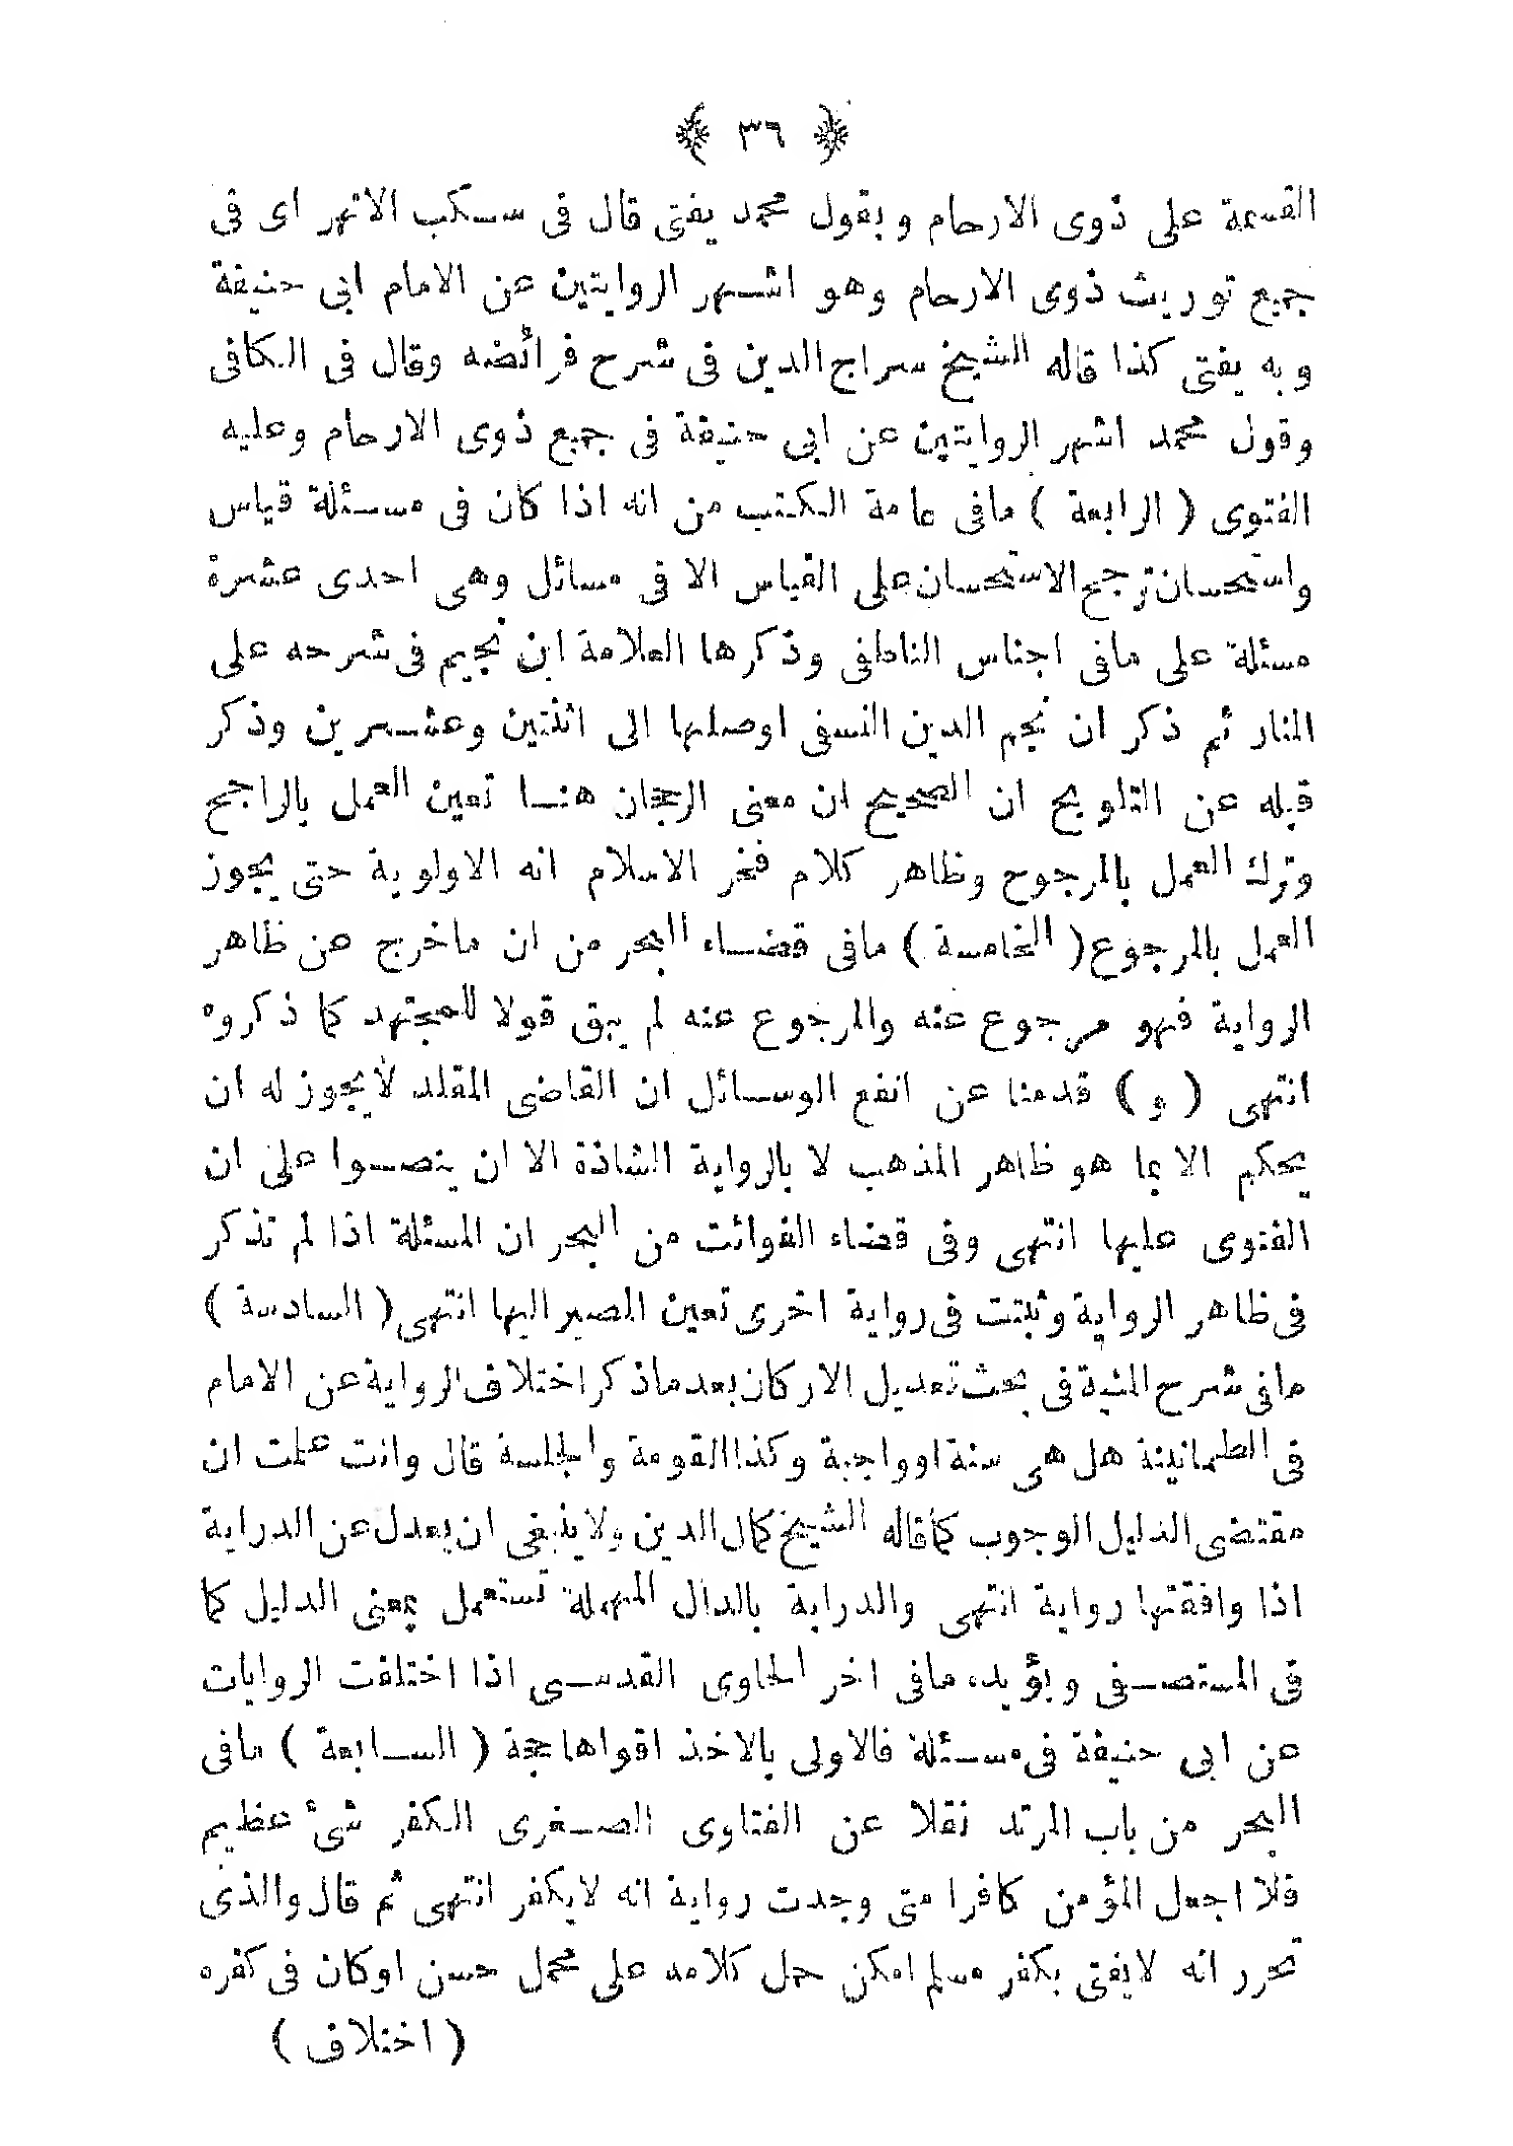 ﴿ ٣٦ ﴾
القسمة على ذوى الارحام وبقول محمد يفتى قال فى سكب الانهر اى فى
جميع توريث ذوى الارحام وهو اشهر الروايتين عن الامام ابى حنيفة
وبه يفتى كذا قاله الشيخ سراج الدين فى شرح فرائضه وقال فى الكافى
وقول محمد اشهر الروايتين عن ابى حنيفة فى جميع ذوى الارحام وعليه
الفتوى ( الرابعة ) مافى عامة الكتب من انه اذا كان فى مسئلة قياس
واستحسان ترجح الاستحسان على القياس الا فى مسائل وهى احدى عشرة
مسئلة على مافى اجناس الناطفى وذكرها العلامة ابن نجيم فى شرحه على
المنار ثم ذكر ان نجم الدين النسفى اوصلها الى اثنتين وعشرين وذكر
قبله عن التلويح ان الصحيح ان معنى الرجحان هنا تعين العمل بالراجح
وترك العمل بالمرجوح وظاهر كلام فخر الاسلام انه الاولوية حتى يجوز
العمل بالمرجوع ( الخامسة ) مافى قضاء البحر من ان ماخرج عن ظاهر
الرواية فهو مرجوع عنه والمرجوع عنه لم يبق قولا للمجتهد كما ذكروه
انتهى ( و ) قدمنا عن انفع الوسائل ان القاضى المقلد لايجوز له ان
يحكم الا بما هو ظاهر المذهب لا بالرواية الشاذة الا ان ينصوا على ان
الفتوى عليها انتهى وفى قضاء الفوائت من البحر ان المسئلة اذا لم تذكر
فى ظاهر الرواية وثبتت فى رواية اخرى تعين المصير اليها انتهى ( السادسة )
مافى شرح المنية فى بحث تعديل الاركان بعد ماذكر اختلاف الرواية عن الامام
فى الطمانينة هل هى سنة اوواجبة وكذا القومة والجلسة قال وانت علمت ان
مقتضى الدليل الوجوب كماقاله الشيخ كمال الدين ولا ينبغى ان يعدل عن الدراية
اذا وافقتها رواية انتهى والدراية بالدال المهملة تستعمل بمعنى الدليل كما
فى المستصفى ويؤيده مافى اخر الحاوى القدسى اذا اختلفت الروايات
عن ابى حنيفة فى مسئلة فالاولى بالاخذ اقواها حجة ( السابعة ) مافى
البحر من باب المرتد نقلا عن الفتاوى الصغرى الكفر شئ عظيم
فلا اجعل المؤمن كافرا متى وجدت رواية انه لايكفر انتهى ثم قال والذى
تحرر انه لايفتى بكفر مسلم امكن حمل كلامه على محمل حسن اوكان فى كفره
( اختلاف )